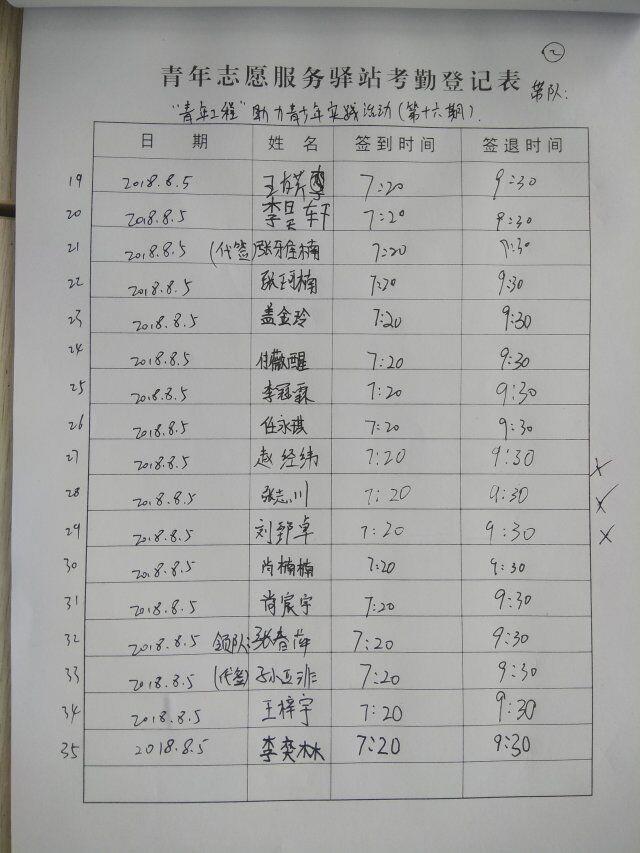 ②
青年志愿服务驿站考勤登记表 带队:
"青年工程"助力青少年实践活动(第十六期).
日 期 姓 名 签到时间 签退时间
19 2018.8.5 7:20 9:30
20 2018.8.5 李昊轩 7:20 9:30
21 2018.8.5 (代签)张雅楠 7:20 9:30
22 2018.8.5 张珂楠 7:20 9:30
23 2018.8.5 盖金玲 7:20 9:30
24 2018.8.5 付薇醒 7:20 9:30
25 2018.8.5 李冠霖 7:20 9:30
26 2018.8.5 任永琪 7:20 9:30
27 2018.8.5 赵经纬 7:20 9:30 ×
28 2018.8.5 张志川 7:20 9:30 ×
29 2018.8.5 刘郅卓 7:20 9:30 ×
30 2018.8.5 尚楠楠 7:20 9:30
31 2018.8.5 尚宸宇 7:20 9:30
32 2018.8.5 领队:张春萍 7:20 9:30
33 2018.8.5 (代签)孙亚非 7:20 9:30
34 2018.8.5 王梓宇 7:20 9:30
35 2018.8.5 李奕林 7:20 9:30